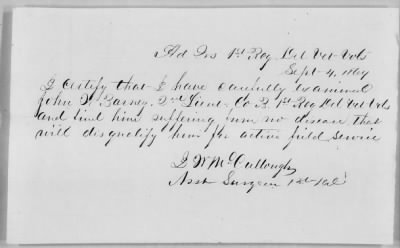 Hd Qrs 1st Reg. Del Vet Vols
Sept 4, 1864
I certify that I have carefully examined
John W. Barney, 2nd Lieut. Co B. 1st Reg Del Vet Vols
and find him suffering from no disease that
will disqualify him for active field service
J W McCullough
Asst Surgeon 1st Del